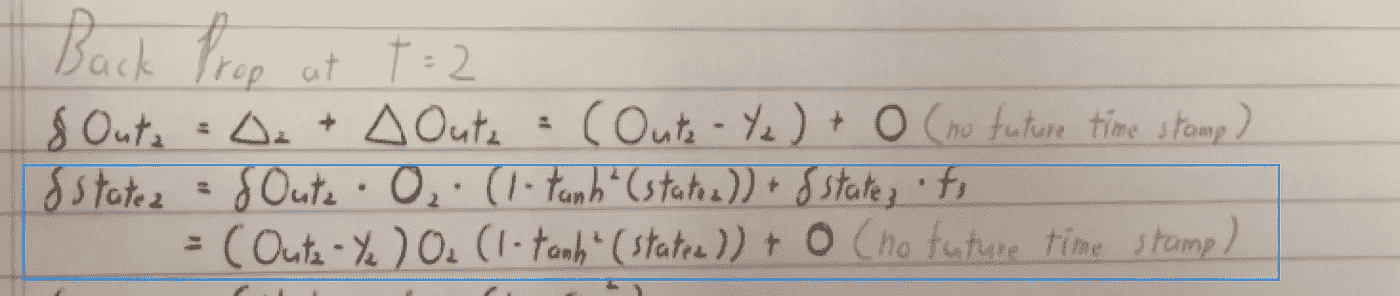 Back Prop at T=2
δOut₂ = Δ₂ + ΔOut₂ = (Out₂ - Y₂) + 0 (no future time stamp)
δstate₂ = δOut₂ · O₂ · (1 - tanh²(state₂)) + δstate₃ · f₃
= (Out₂ - Y₂) O₂ (1 - tanh²(state₂)) + 0 (no future time stamp)